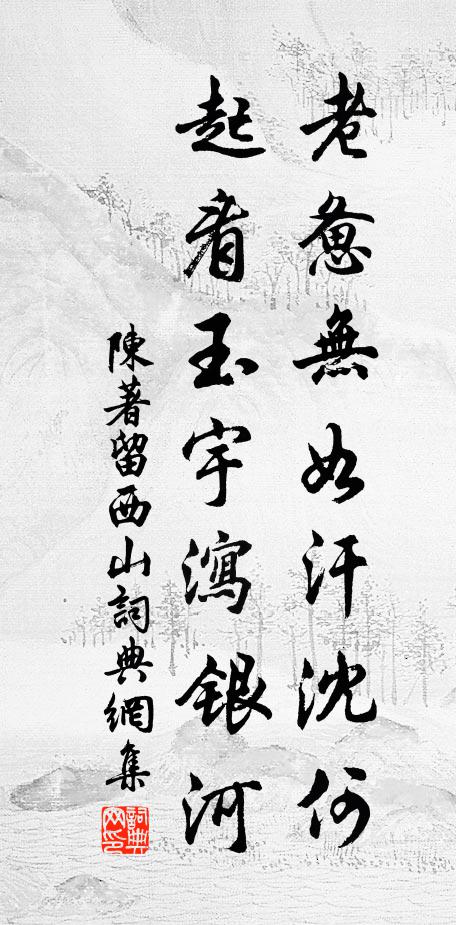 老惫無如汗沈何
起看玉宇瀉銀河
陳著留西山詞典網集
詞典
网印